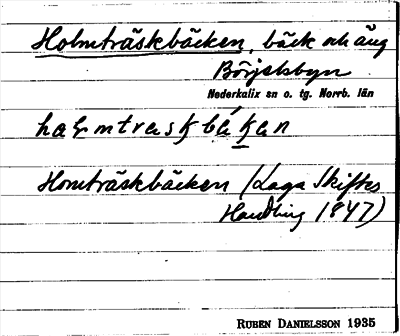 Holmträskbäcken, bäck och äng
Börjelsbyn
Nederkalix sn o. tg. Norrb. län
Homträskbäcken (Laga Skiftes
Handling 1847)
RUBEN DANIELSSON 1935